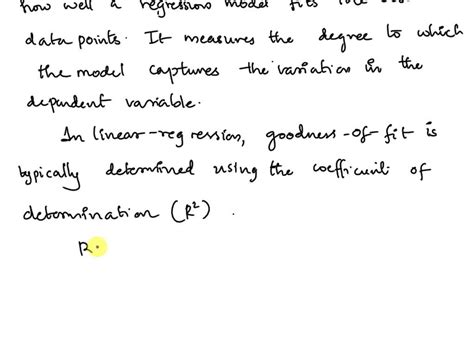 how well a regression model fits
data points. It measures the degree to which
the model captures the variation in the
dependent variable.
In linear-regression, goodness-of-fit is
typically determined using the coefficient of
determination (R²).
R